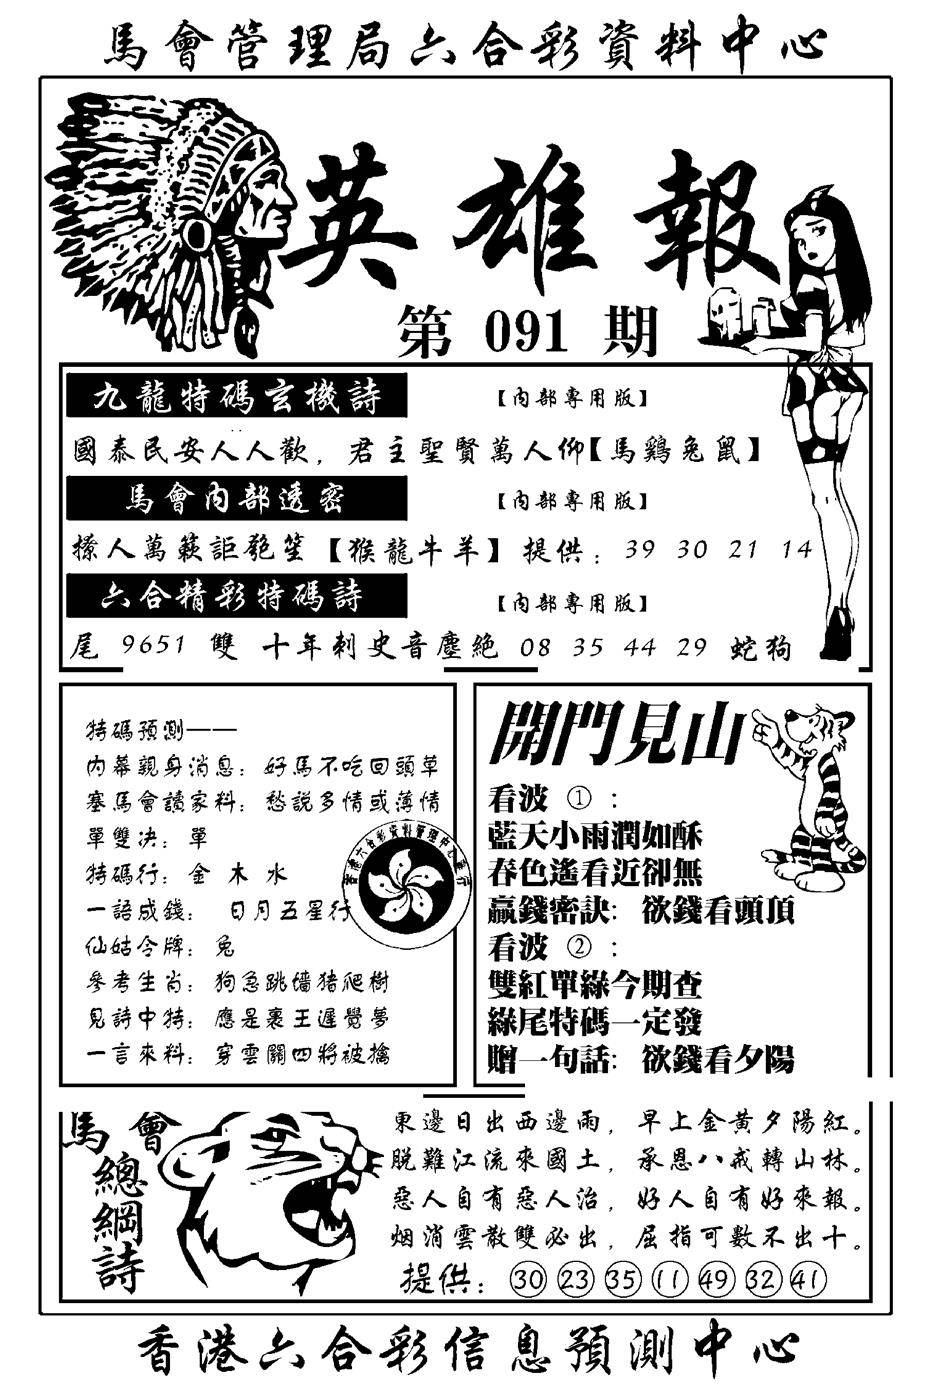 馬會管理局六合彩資料中心
英雄報
第 091 期
九龍特碼玄機詩 【內部專用版】
國泰民安人人歡，君主聖賢萬人仰【馬鷄兔鼠】
馬會內部透密 【內部專用版】
人萬 笙【猴龍牛羊】提供：39 30 21 14
六合精彩特碼詩 【內部專用版】
尾 9651 雙 十年刺史音塵絶 08 35 44 29 蛇狗
特碼預測——
內幕親身消息：好馬不吃回頭草
塞馬會讀家料：愁說多情或薄情
單雙决：單
特碼行：金 木 水
一語成錢：日月五星行
仙姑令牌：兔
參考生肖：狗急跳墻猪爬樹
見詩中特：應是裹王遲覺夢
一言來料：穿雲關四將被擒
開門見山
看波 ①：
藍天小雨潤如酥
春色遙看近卻無
贏錢密訣：欲錢看頭頂
看波 ②：
雙紅單綠今期查
綠尾特碼一定發
贈一句話：欲錢看夕陽
香港六合彩資料管理中心發行
馬會
總綱詩
東邊日出西邊雨，早上金黃夕陽紅。
脱難江流來國土，承恩八戒轉山林。
惡人自有惡人治，好人自有好來報。
烟消雲散雙必出，屈指可數不出十。
提供：30 23 35 11 49 32 41
香港六合彩信息預測中心